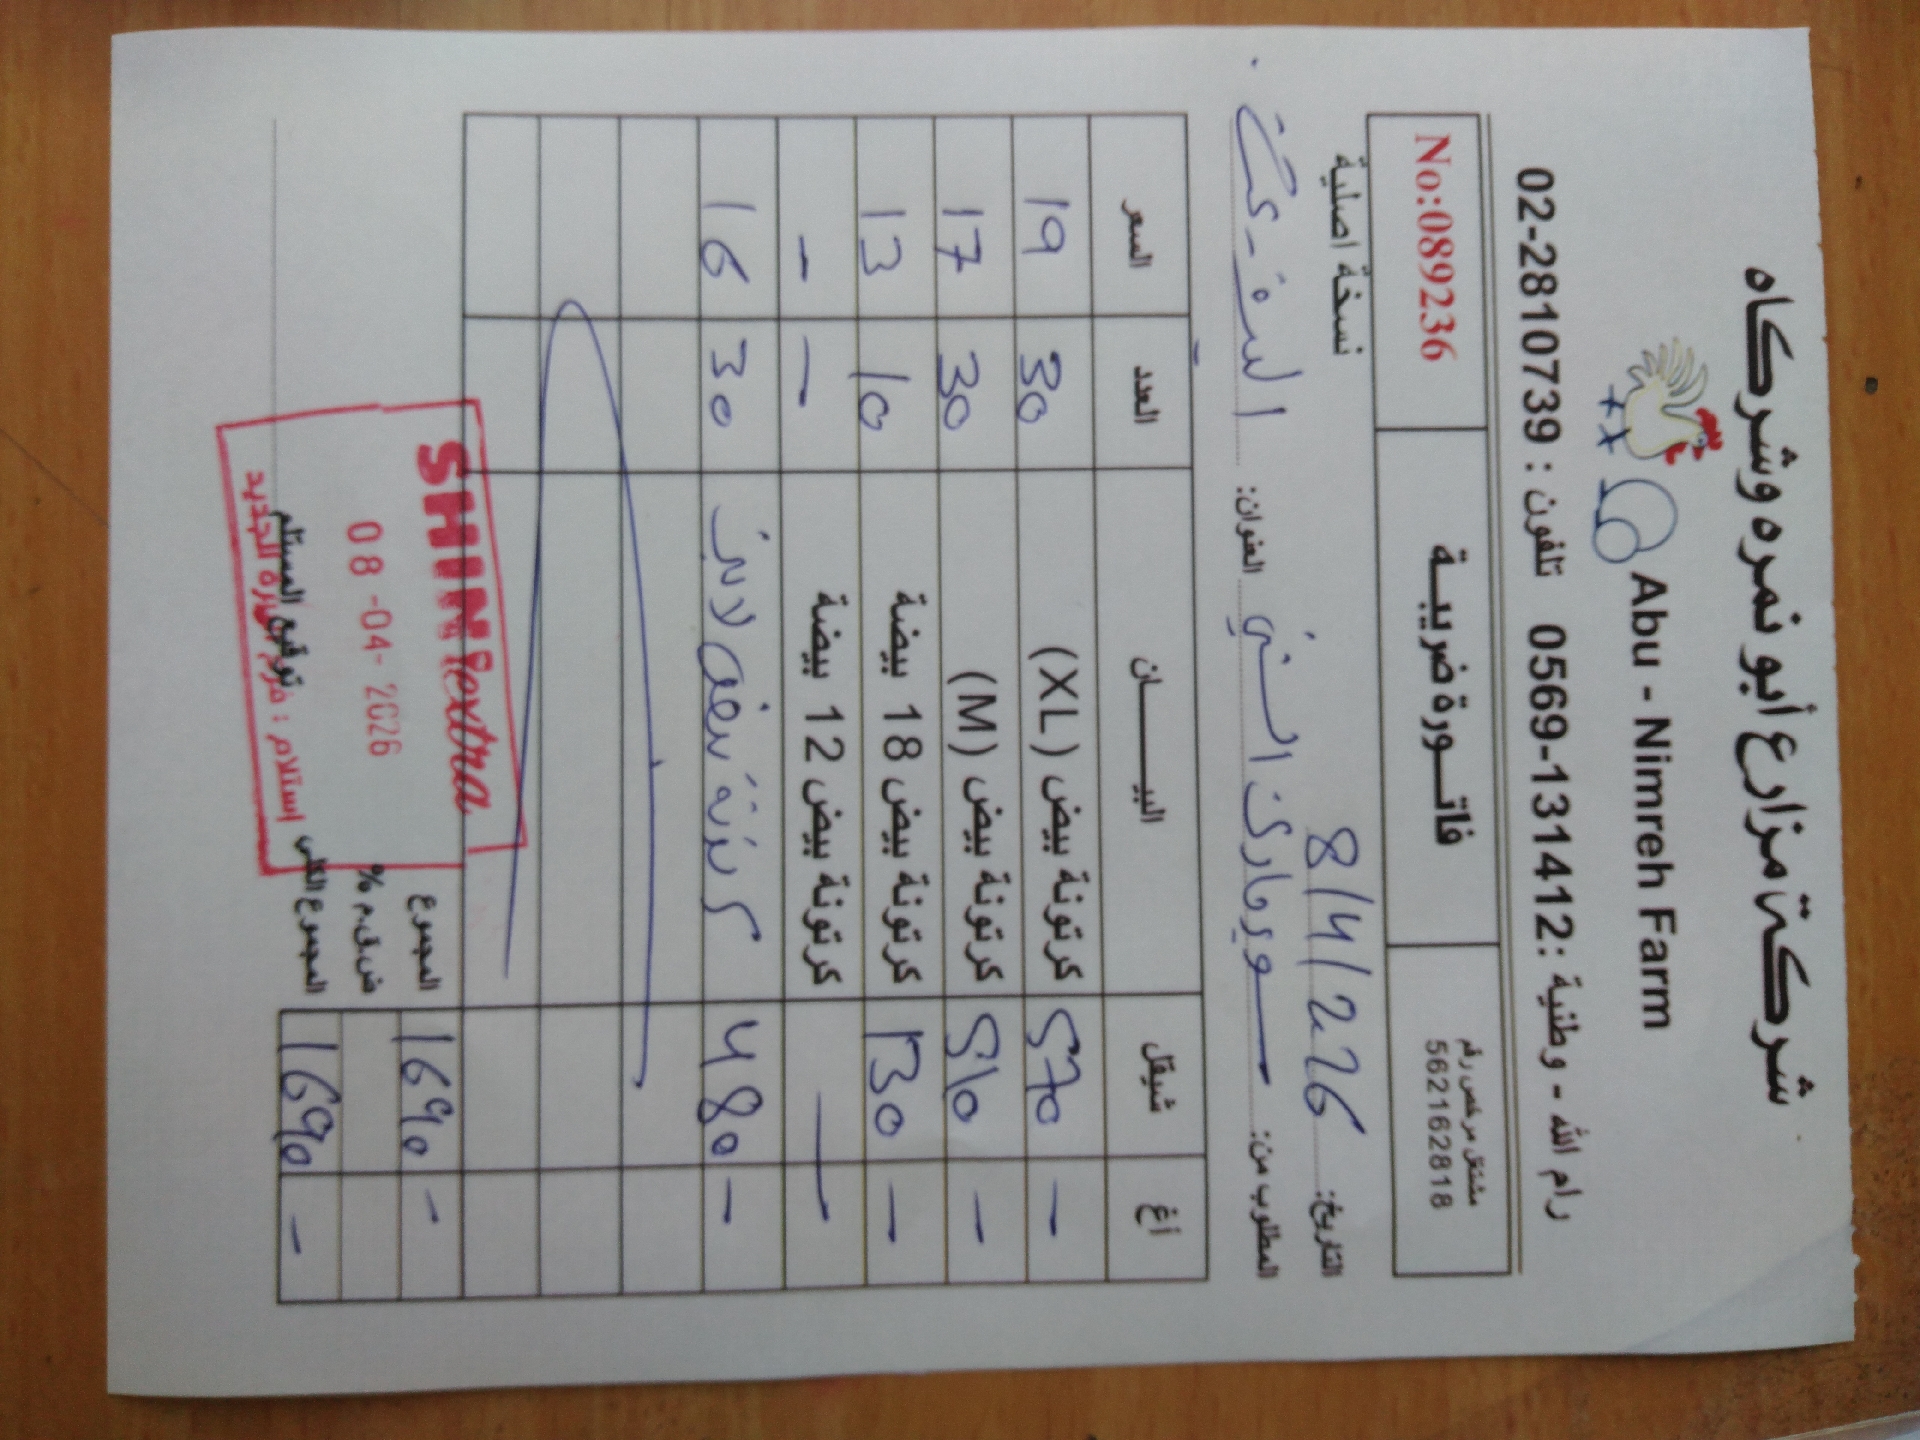 شركة مزارع أبو نمره وشركاه
Abu - Nimreh Farm
رام الله - وطنية : 0569-131412 تلفون : 02-2810739
مشتغل مرخص رقم
562162818
فاتـورة ضريبيـة
No:089236
نسخة اصلية
التاريخ: 8/4/226
المطلوب من: سوبرماركت السني العنوان:
شيقل أغ البيـــان العدد السعر
570 - كرتونة بيض (XL) 30 19
510 - كرتونة بيض (M) 30 17
130 - كرتونة بيض 18 بيضة 10 13
— كرتونة بيض 12 بيضة - -
480 - كرتونة 30 16
المجموع 1690 -
ض.ق.م %
المجموع الكلي 1690 -
توقيع المستلم
SHINI extra
08 -04- 2026
إستلام : فرع البيرة الجديد